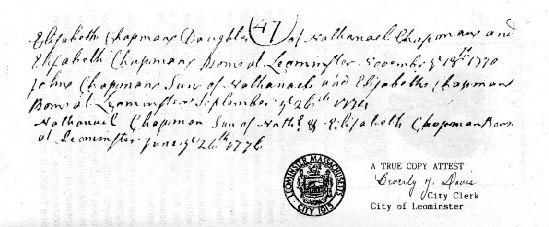 47
Elizabeth Chapman Daughter of Nathanael Chapman and
Elizabeth Chapman Born at Leominster November ye 18th 1770
John Chapman Sun of Nathanael and Elizabeth Chapman
Born at Leominster September ye 26th 1774
Nathanael Chapman Sun of Nathl & Elizabeth Chapman Born
at Leominster June ye 26th 1776
LEOMINSTER MASSACHUSETTS
CITY 1915
A TRUE COPY ATTEST
Beverly J. Davis
City Clerk
City of Leominster